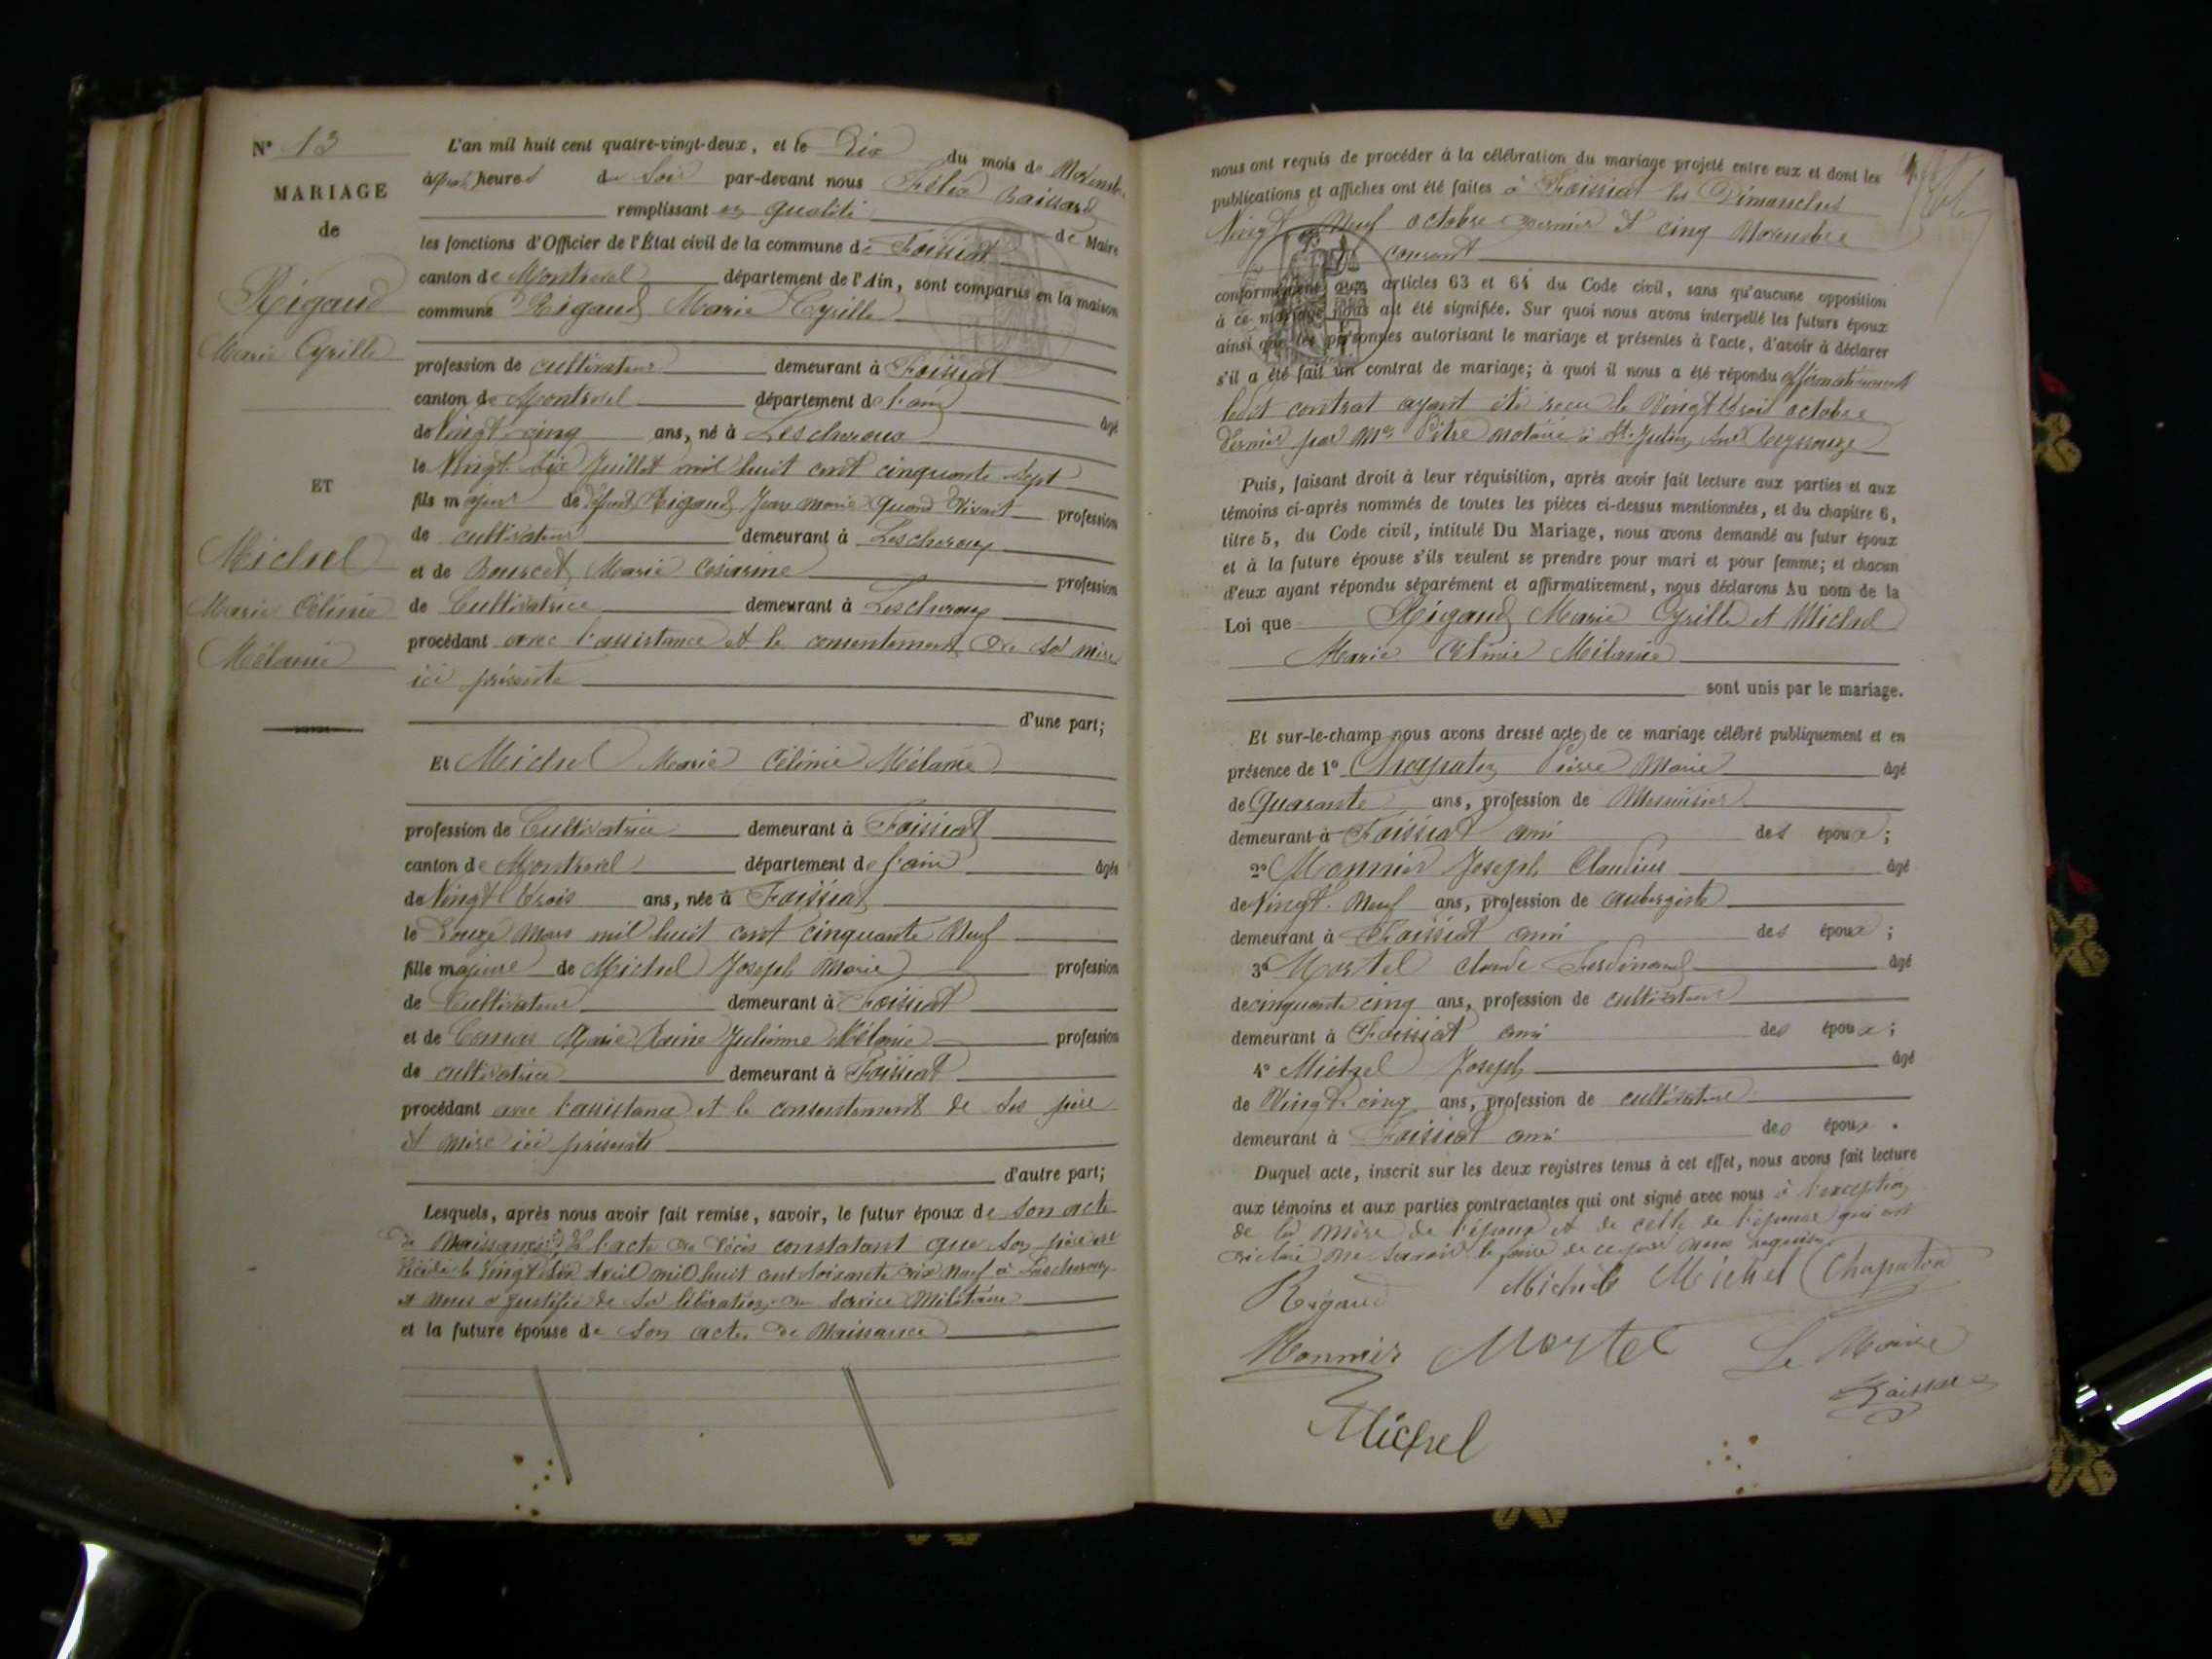 N° 13
MARIAGE
de
Rigaud
Marie Cyrille
ET
Michel
Marie Célinie
Mélanie
L'an mil huit cent quatre-vingt-deux, et le Dix du mois de Novembre
à quatre heures du Soir par-devant nous Félix
remplissant en qualité de Maire
les fonctions d'Officier de l'État civil de la commune de Foissiat
canton de Montrevel département de l'Ain, sont comparus en la maison
commune Rigaud Marie Cyrille
profession de cultivateur demeurant à Foissiat
canton de Montrevel département de l'ain âgé
de Vingt cinq ans, né à Lescheroux
le Vingt Six Juillet mil huit cent cinquante Sept
fils majeur de défunt Rigaud Jean Marie quand Vivait profession
de cultivateur demeurant à Lescheroux
et de Bourcet Marie Césarine profession
de Cultivatrice demeurant à Lescheroux
procédant avec l'assistance et le consentement de sa mère
ici présente
d'une part;
Et Michel Marie Célinie Mélanie
profession de Cultivatrice demeurant à Foissiat
canton de Montrevel département de l'ain âgée
de Vingt trois ans, née à Foissiat
le Douze Mars mil huit cent cinquante Neuf
fille majeure de Michel Joseph Marie profession
de Cultivateur demeurant à Foissiat
et de Convas Marie Reine Julienne Mélanie profession
de cultivatrice demeurant à Foissiat
procédant avec l'assistance et le consentement de ses père
et mère ici présents
d'autre part;
Lesquels, après nous avoir fait remise, savoir, le futur époux de Son acte
de Naissance, de l'acte de décès constatant que son père est
décédé le Vingt Six Avril mil huit cent Soixante dix Neuf à Lescheroux
et nous a justifié de sa libération du service Militaire
et la future épouse de Son acte de Naissance
nous ont requis de procéder à la célébration du mariage projeté entre eux et dont les
publications et affiches ont été faites à Foissiat les Dimanches
Vingt Neuf octobre dernier et cinq Novembre
courant
conformément aux articles 63 et 64 du Code civil, sans qu'aucune opposition
à ce mariage nous ait été signifiée. Sur quoi nous avons interpellé les futurs époux
ainsi que les personnes autorisant le mariage et présentes à l'acte, d'avoir à déclarer
s'il a été fait un contrat de mariage; à quoi il nous a été répondu affirmativement
ledit contrat ayant été reçu le Vingt trois octobre
dernier par Me Pitre notaire à St Julien sur Reyssouze
Puis, faisant droit à leur réquisition, après avoir fait lecture aux parties et aux
témoins ci-après nommés de toutes les pièces ci-dessus mentionnées, et du chapitre 6,
titre 5, du Code civil, intitulé Du Mariage, nous avons demandé au futur époux
et à la future épouse s'ils veulent se prendre pour mari et pour femme; et chacun
d'eux ayant répondu séparément et affirmativement, nous déclarons Au nom de la
Loi que Rigaud Marie Cyrille et Michel
Marie Célinie Mélanie
sont unis par le mariage.
Et sur-le-champ nous avons dressé acte de ce mariage célébré publiquement et en
présence de 1° Chapaton Pierre Marie âgé
de Quarante ans, profession de Menuisier
demeurant à Foissiat ami des époux;
2° Monnier Joseph Claudius âgé
de Vingt Neuf ans, profession de aubergiste
demeurant à Foissiat ami des époux;
3° Mortel Claude Ferdinand âgé
de cinquante cinq ans, profession de cultivateur
demeurant à Foissiat ami des époux;
4° Michel Joseph âgé
de Vingt cinq ans, profession de cultivateur
demeurant à Foissiat ami des époux.
Duquel acte, inscrit sur les deux registres tenus à cet effet, nous avons fait lecture
aux témoins et aux parties contractantes qui ont signé avec nous à l'exception
de la mère de l'époux et de celle de l'épouse qui ont
déclaré ne savoir le faire de ce par nous requises
Rigaud Michel Michel Chapaton
Monnier Mortel Le Maire
Michel